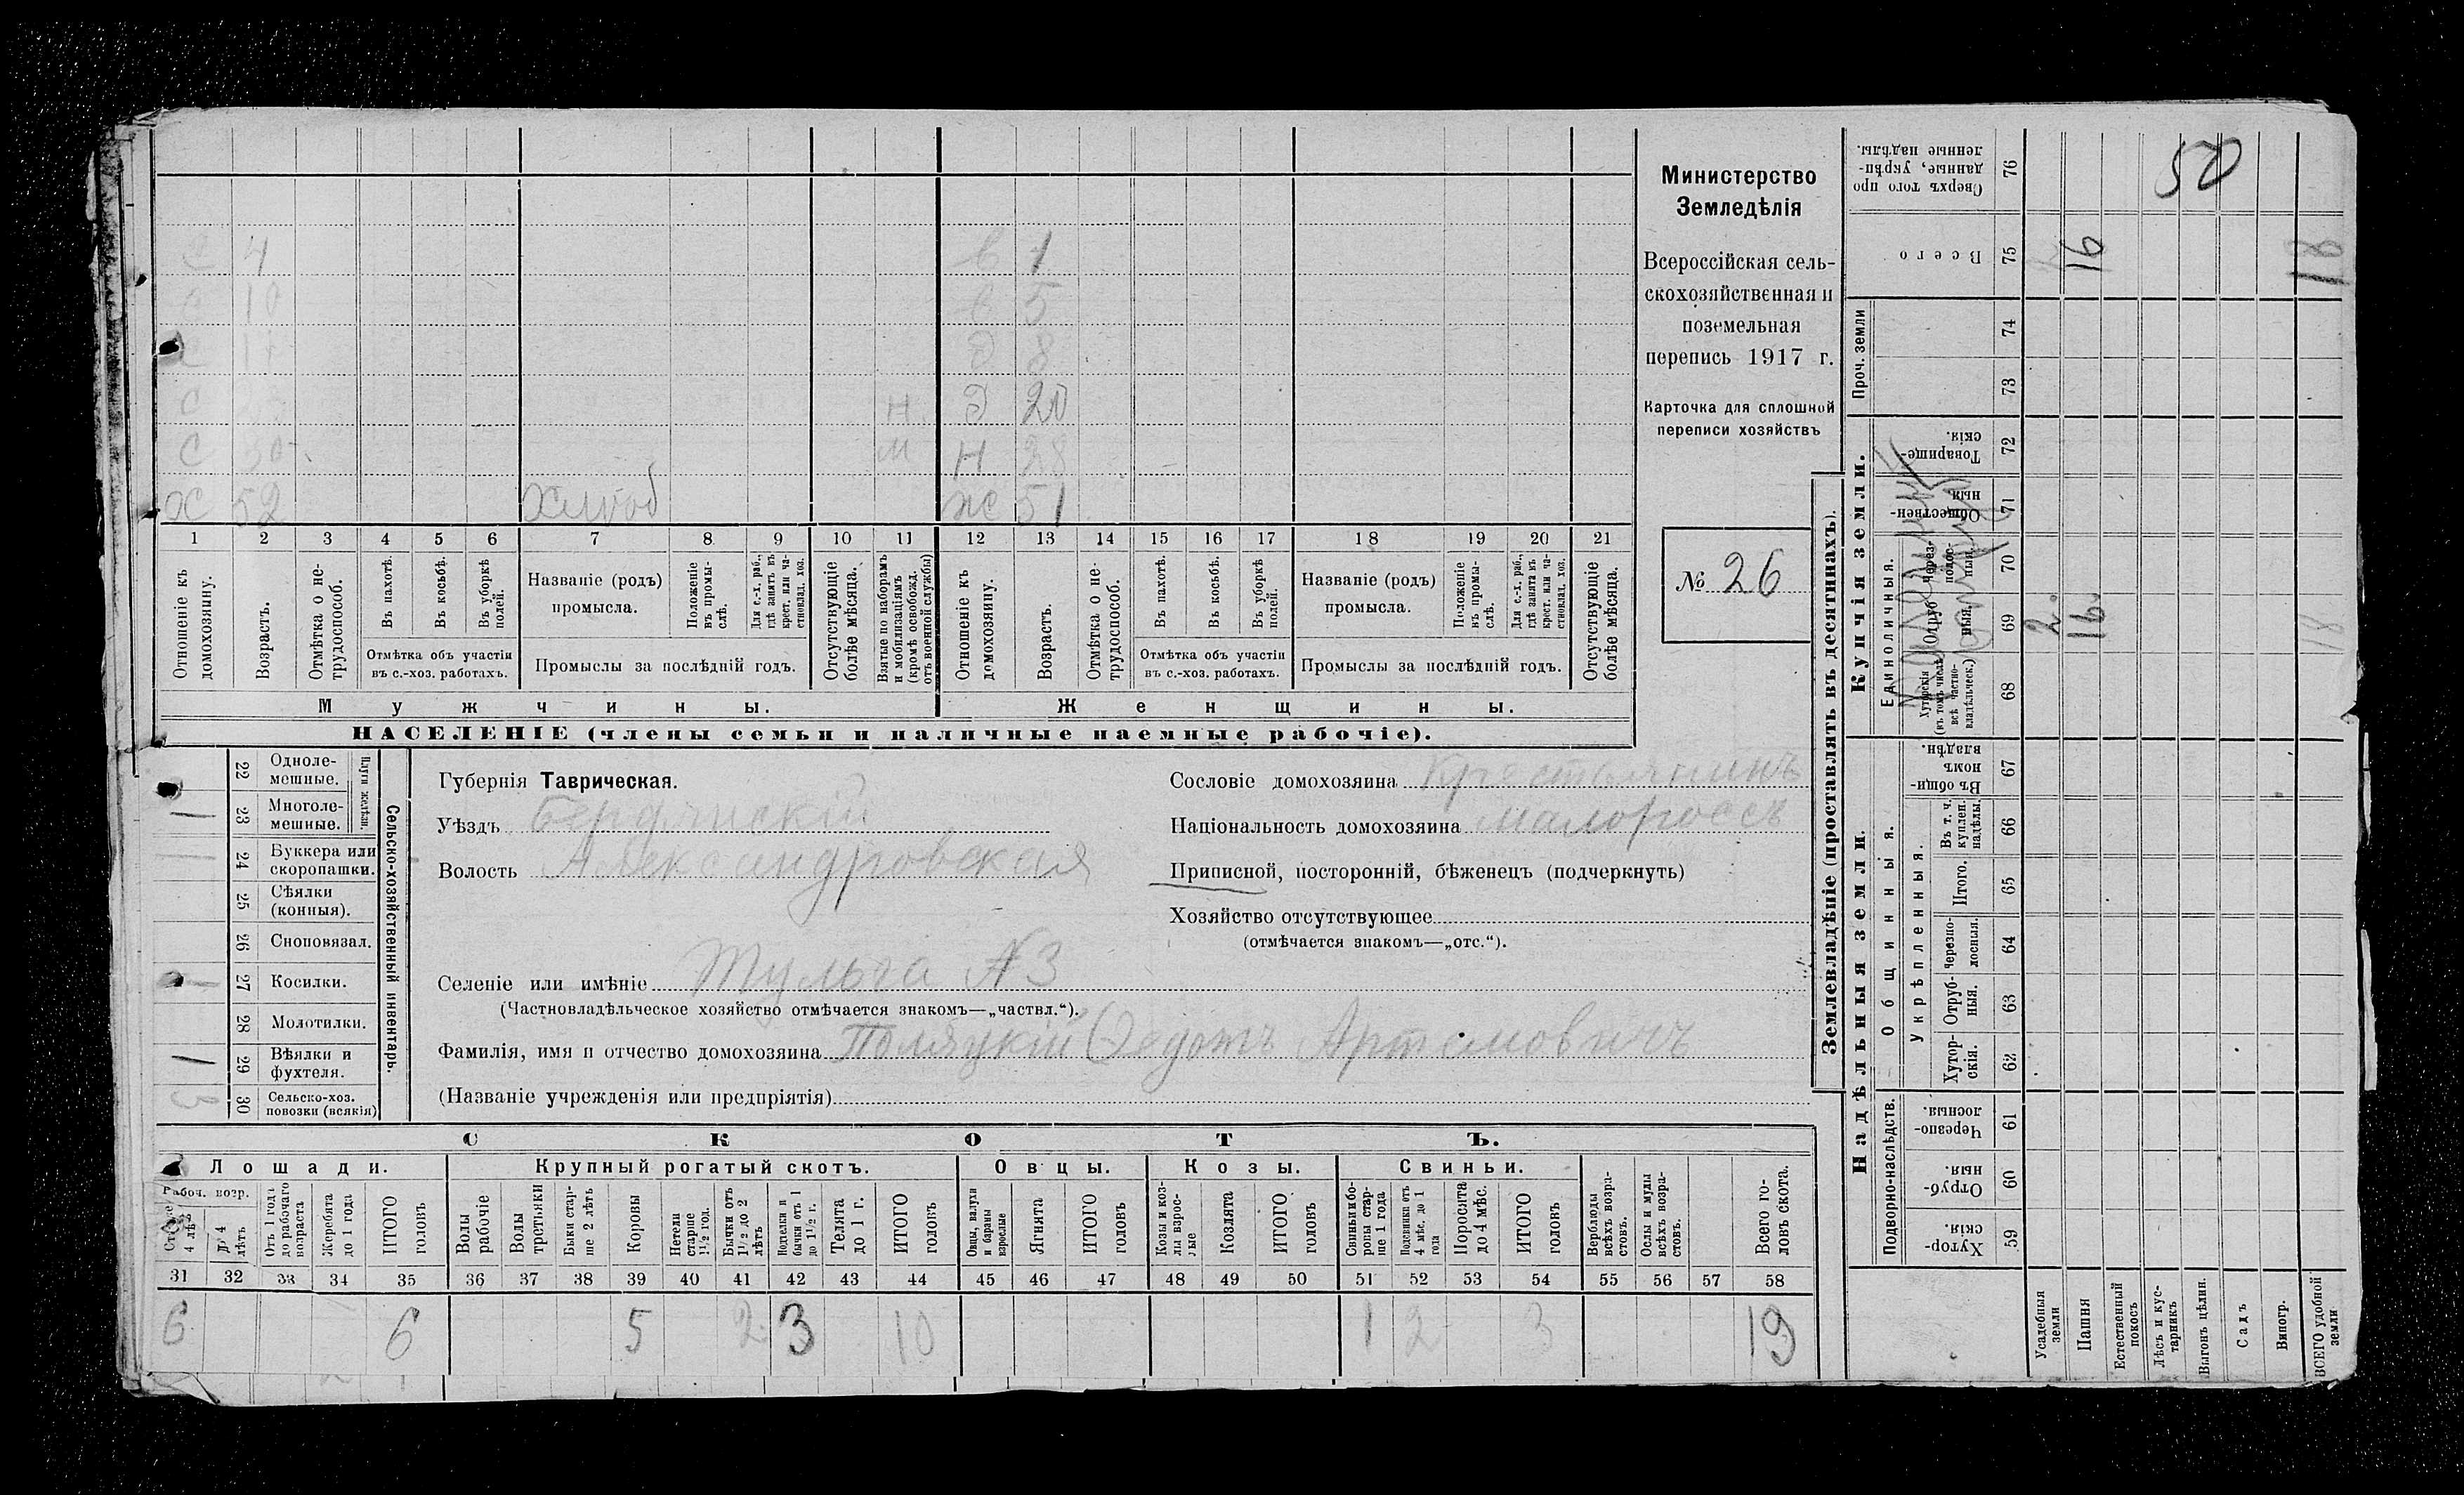 Министерство
Земледѣлія
Всероссійская сель-
скохозяйственная и
поземельная
перепись 1917 г.
Карточка для сплошной
переписи хозяйствъ
№ 26
С 4 в 1
С 10 в 5
Д 8
С Н Д 20
С 30 М Н 28
Х 52 Хлѣбоб Ж 51
1 2 3 4 5 6 7 8 9 10 11 12 13 14 15 16 17 18 19 20 21
Отношеніе къ домохозяину.
Возрастъ.
Отмѣтка о не-трудоспособ.
Въ пахотѣ.
Въ косьбѣ.
Въ уборкѣ полей.
Отмѣтка объ участіи
въ с.-хоз. работахъ.
Названіе (родъ)
промысла.
Положеніе въ промы-слѣ.
Для с.-х. раб., гдѣ занятъ въ крест. или ча-стновлад. хоз.
Промыслы за послѣдній годъ.
Отсутствующіе болѣе мѣсяца.
Взятые по наборамъ и мобилизаціямъ (кромѣ освобожд. отъ военной службы)
Отношеніе къ домохозяину.
Возрастъ.
Отмѣтка о не-трудоспособ.
Въ пахотѣ.
Въ косьбѣ.
Въ уборкѣ полей.
Отмѣтка объ участіи
въ с.-хоз. работахъ.
Названіе (родъ)
промысла.
Положеніе въ промы-слѣ.
Для с.-х. раб., гдѣ занята въ крест. или ча-стновлад. хоз.
Промыслы за послѣдній годъ.
Отсутствующіе болѣе мѣсяца.
Мужчины.
Женщины.
НАСЕЛЕНІЕ (члены семьи и наличные наемные рабочіе).
Сельско-хозяйственный инвентарь.
Плуги желѣзн.
22 Одноле-мешные.
1 23 Многоле-мешные.
1 24 Буккера или скоропашки.
25 Сѣялки (конныя).
26 Сноповязал.
1 27 Косилки.
28 Молотилки.
1 29 Вѣялки и фухтеля.
3 30 Сельско-хоз. повозки (всякія)
Губернія Таврическая.
Уѣздъ Бердянскій
Волость Александровская
Селеніе или имѣніе Тульга №3
(Частновладѣльческое хозяйство отмѣчается знакомъ—„частвл.“).
Фамилія, имя и отчество домохозяина Поляцкій Федотъ Артемовичъ
(Названіе учрежденія или предпріятія)
Сословіе домохозяина Крестьянинъ
Національность домохозяина малороссъ
Приписной, посторонній, бѣженецъ (подчеркнуть)
Хозяйство отсутствующее
(отмѣчается знакомъ—„отс.“).
СКОТЪ.
Лошади.
Крупный рогатый скотъ.
Овцы.
Козы.
Свиньи.
Рабоч. возр.
Старше 4 лѣтъ
До 4 лѣтъ
Отъ 1 года до рабочаго возраста
Жеребята до 1 года
ИТОГО головъ
Волы рабочіе
Волы третьяки
Быки стар-ше 2 лѣтъ
Коровы
Нетели старше 1½ год.
Бычки отъ 1½ до 2 лѣтъ
Подтелки и бычки отъ 1 до 1½ г.
Телята до 1 г.
ИТОГО головъ
Овцы, валухи и бараны взрослые
Ягнята
ИТОГО головъ
Козы и коз-лы взрос-лые
Козлята
ИТОГО головъ
Свиньи и бо-ровы стар-ше 1 года
Подсвинки отъ 4 мѣс. до 1 года
Поросята до 4 мѣс.
ИТОГО головъ
Верблюды всѣхъ возра-стовъ.
Ослы и мулы всѣхъ возра-стовъ.
Всего го-ловъ скота.
31 32 33 34 35 36 37 38 39 40 41 42 43 44 45 46 47 48 49 50 51 52 53 54 55 56 57 58
6 6 5 2 3 10 1 2 3 19
Землевладѣніе (проставлять въ десятинахъ).
Купчія земли.
Надѣльныя земли.
Сверхъ того про-данные, укрѣп-ленные надѣлы. 76 50
Всего 75 16 18
Проч. земли 74
73
Единоличныя.
Товарище-скія. 72
Обществен-ныя 71
Черезполос-ныя 70
Отруб-ныя. 69 2. 16. 18
Хуторскія (въ томъ числѣ всѣ частно-владѣльческ.) 68
Общинныя.
Въ общи-номъ владѣн. 67
Укрѣпленныя.
Въ т. ч. куплен. надѣлы. 66
Итого. 65
Черезпо-лосныя. 64
Отруб-ныя. 63
Хутор-скія. 62
Подворно-наслѣдств.
Черезпо-лосныя. 61
Отруб-ныя. 60
Хутор-скія. 59
Усадебныя земли
Пашня
Естественный покосъ
Лѣсъ и кус-тарникъ
Выгонъ цѣлин.
Садъ
Виногр.
ВСЕГО удобной земли